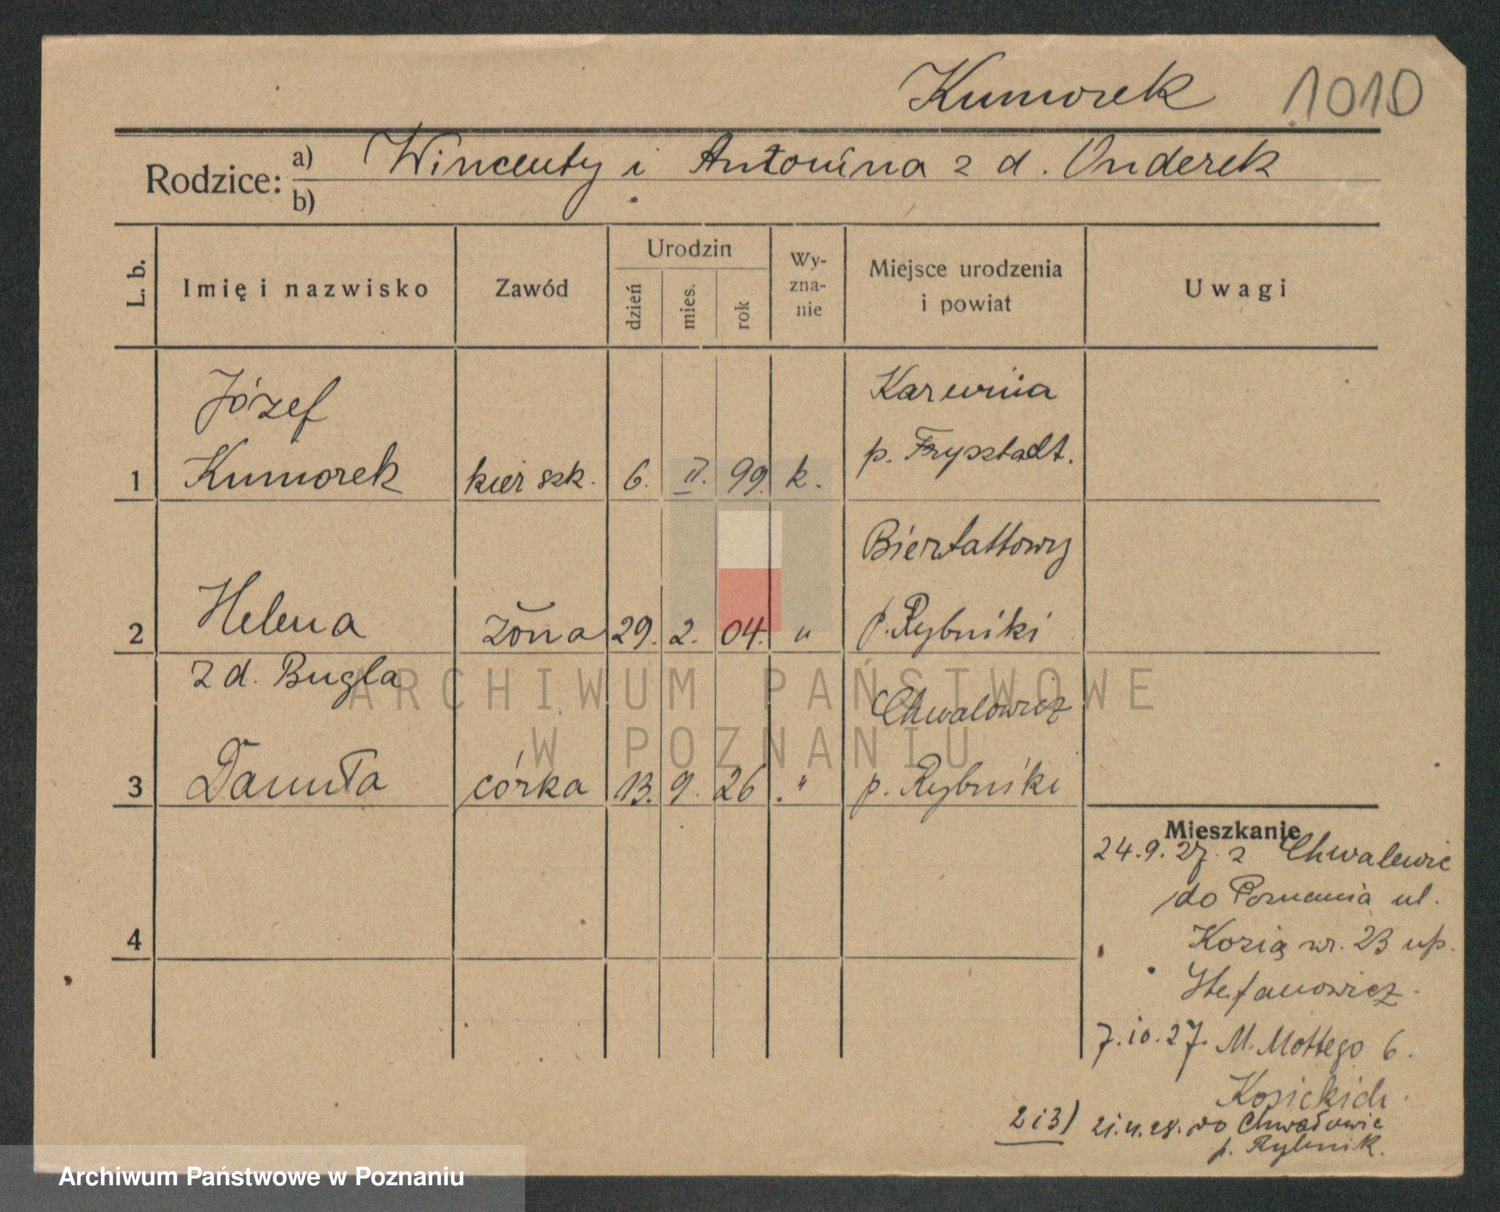 Kumorek 1010
Rodzice: a) Wincenty i Antonina z d. Onderek
b)
L. b.
Imię i nazwisko
Zawód
Urodzin
dzień
mies.
rok
Wy-
zna-
nie
Miejsce urodzenia
i powiat
Uwagi
Józef
Karwina
p. Frysztadt.
1 Kumorek kier szk. 6. II. 99. k.
Biertułtowy
2 Helena żona 29. 2. 04. " p. Rybniki
z d. Bugla
Chwałowicz
3 Danuta córka 13. 9. 26 " p. Rybniki
4
Mieszkanie
24.9.27. z Chwałowic
do Poznania ul.
Kozia nr. 23 up.
Stefanowicz.
7.10.27. M. Mottego 6.
Kosickich.
2 i 3) 21. 28. do Chwałowic
p. Rybnik.
ARCHIWUM PAŃSTWOWE
W POZNANIU
Archiwum Państwowe w Poznaniu